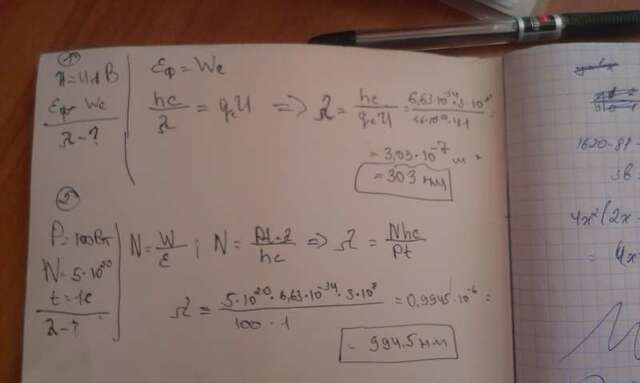 ①
U=4,1 В
εф= We
λ-?
εф = We
hc/λ = qeU => λ = hc/qeU = 6,63·10^-34·3·10^8/1,6·10^-19·4,1 =
= 3,03·10^-7 м =
= 303 нм
②
P=100Вт
N=5·10^20
t=1c
λ-?
N = W/ε ; N = Pt·λ/hc => λ = Nhc/Pt
λ = 5·10^20·6,63·10^-34·3·10^8/100·1 = 0,9945·10^-6 =
= 994,5 нм
1620-81-
зв=
4x²(2x
= 4x